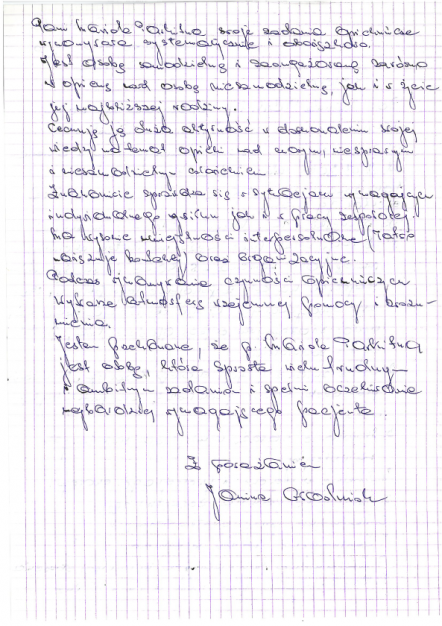 Pani Mariola swoje zadania opiekuńcze
wykonywała systematycznie i
Jest osobą samodzielną i zaangażowaną zarówno
w opiekę nad osobą niesamodzielną, jak i w życie
jej najbliższej rodziny.
Cechuje ją duża aktywność w doskonaleniu swojej
wiedzy na temat opieki nad chorym, niesprawnym
i niesamodzielnym
Znakomicie sprawdza się w sytuacjach wymagających
indywidualnego wysiłku jak i w pracy zespołowej.
Ma wysokie umiejętności interpersonalne (łatwo
nawiązuje kontakty) oraz organizacyjne.
Podczas wykonywania czynności opiekuńczych
wykazuje atmosferę wzajemnej pomocy i
mienia.
Jestem przekonana, że p. Mariola
jest osobą, która sprosta wielu trudnym
i ambitnym zadaniom i spełni oczekiwania
najbardziej wymagającego pacjenta.
Z poważaniem
Janina